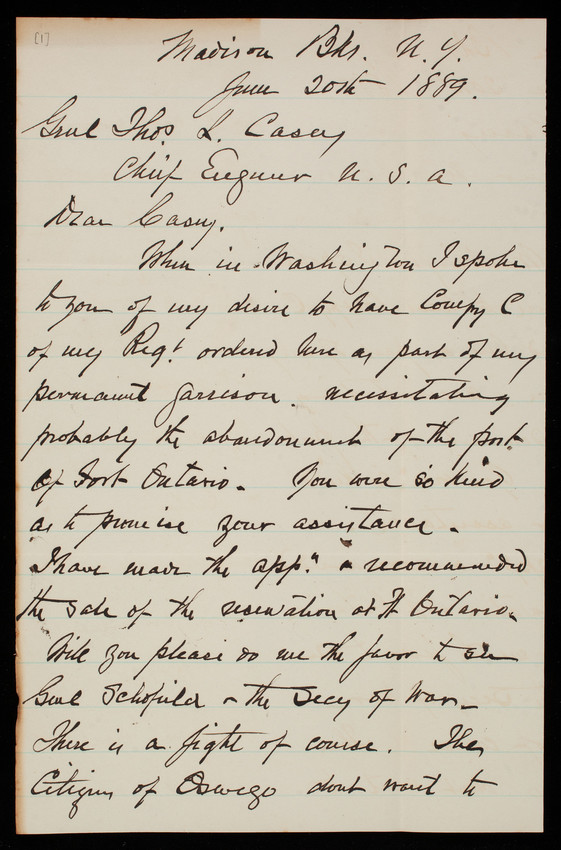 [1]
Madison Bks. N.Y.
June 20th 1889.
Genl Thos. L. Casey
Chief Engineer U. S. A.
Dear Casey,
When in Washington I spoke
to you of my desire to have Compy C
of my Regt. ordered here as part of my
permanent garrison. necessitating
probably the abandonment of the post
of Fort Ontario. You were so kind
as to promise your assistance.
I have made the appn. & recommended
the sale of the reservation at Ft Ontario.
Will you please do me the favor to see
Genl Schofield & the Secy of War.
There is a fight of course. The
Citizens of Oswego dont want to